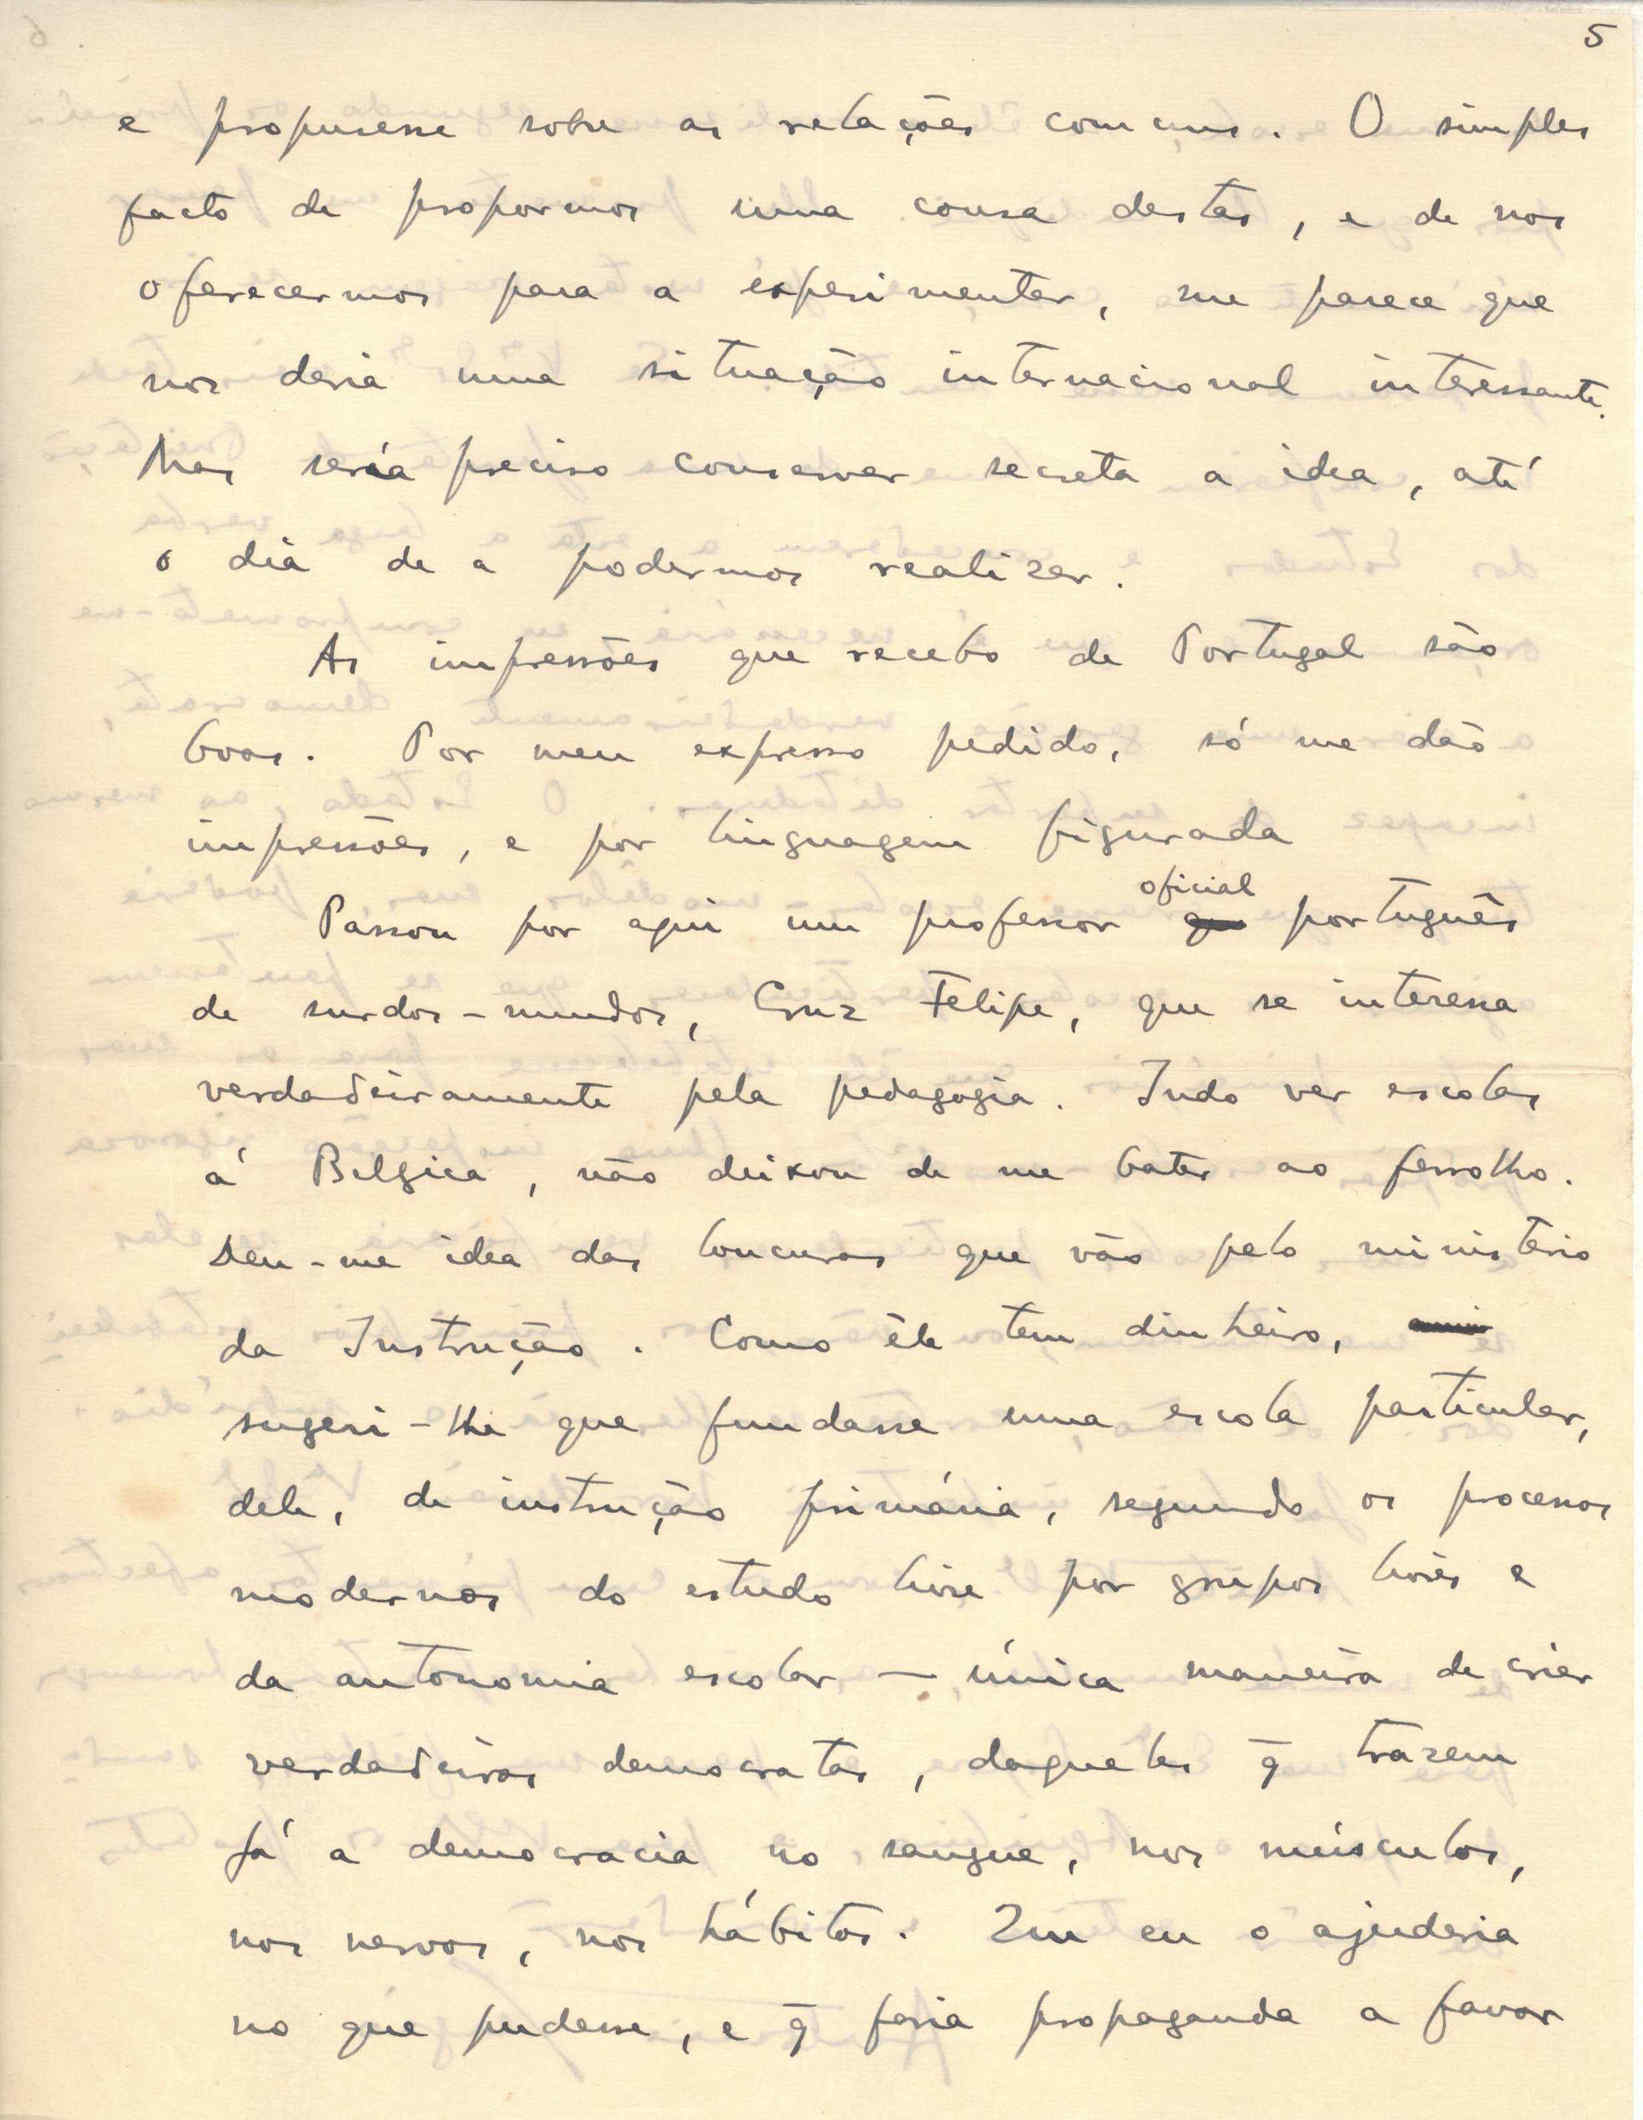 5
e propusesse sobre as relações comuns. O simples
facto de propormos uma cousa destas, e de nos
oferecermos para a experimentar, me parece que
nos daria uma situação internacional interessante.
Mas seria preciso conservar secreta a idea, até
o dia de a podermos realizar.
As impressões que recebo de Portugal são
boas. Por meu expresso pedido, só me dão
impressões, e por linguagem figurada
oficial
Passou por aqui um professor português
de surdos-mundos, Cruz Felipe, que se interessa
verdadeiramente pela pedagogia. Indo ver escolas
à Bélgica, não deixou de me bater ao ferrolho.
Deu-me idea das loucuras que vão pelo ministério
da Instrução. Como êle tem dinheiro,
sugeri-lhe que fundasse uma escola particular,
dele, de instrução primária, segundo os processos
modernos do estudo livre por grupos livres e
da autonomia escolar – única maneira de criar
verdadeiros democratas, daqueles q̄ trazem
já a democracia no sangue, nos músculos,
nos nervos, nos hábitos. Em eu o ajudaria
no que pudesse, e q̄ faria propaganda a favor